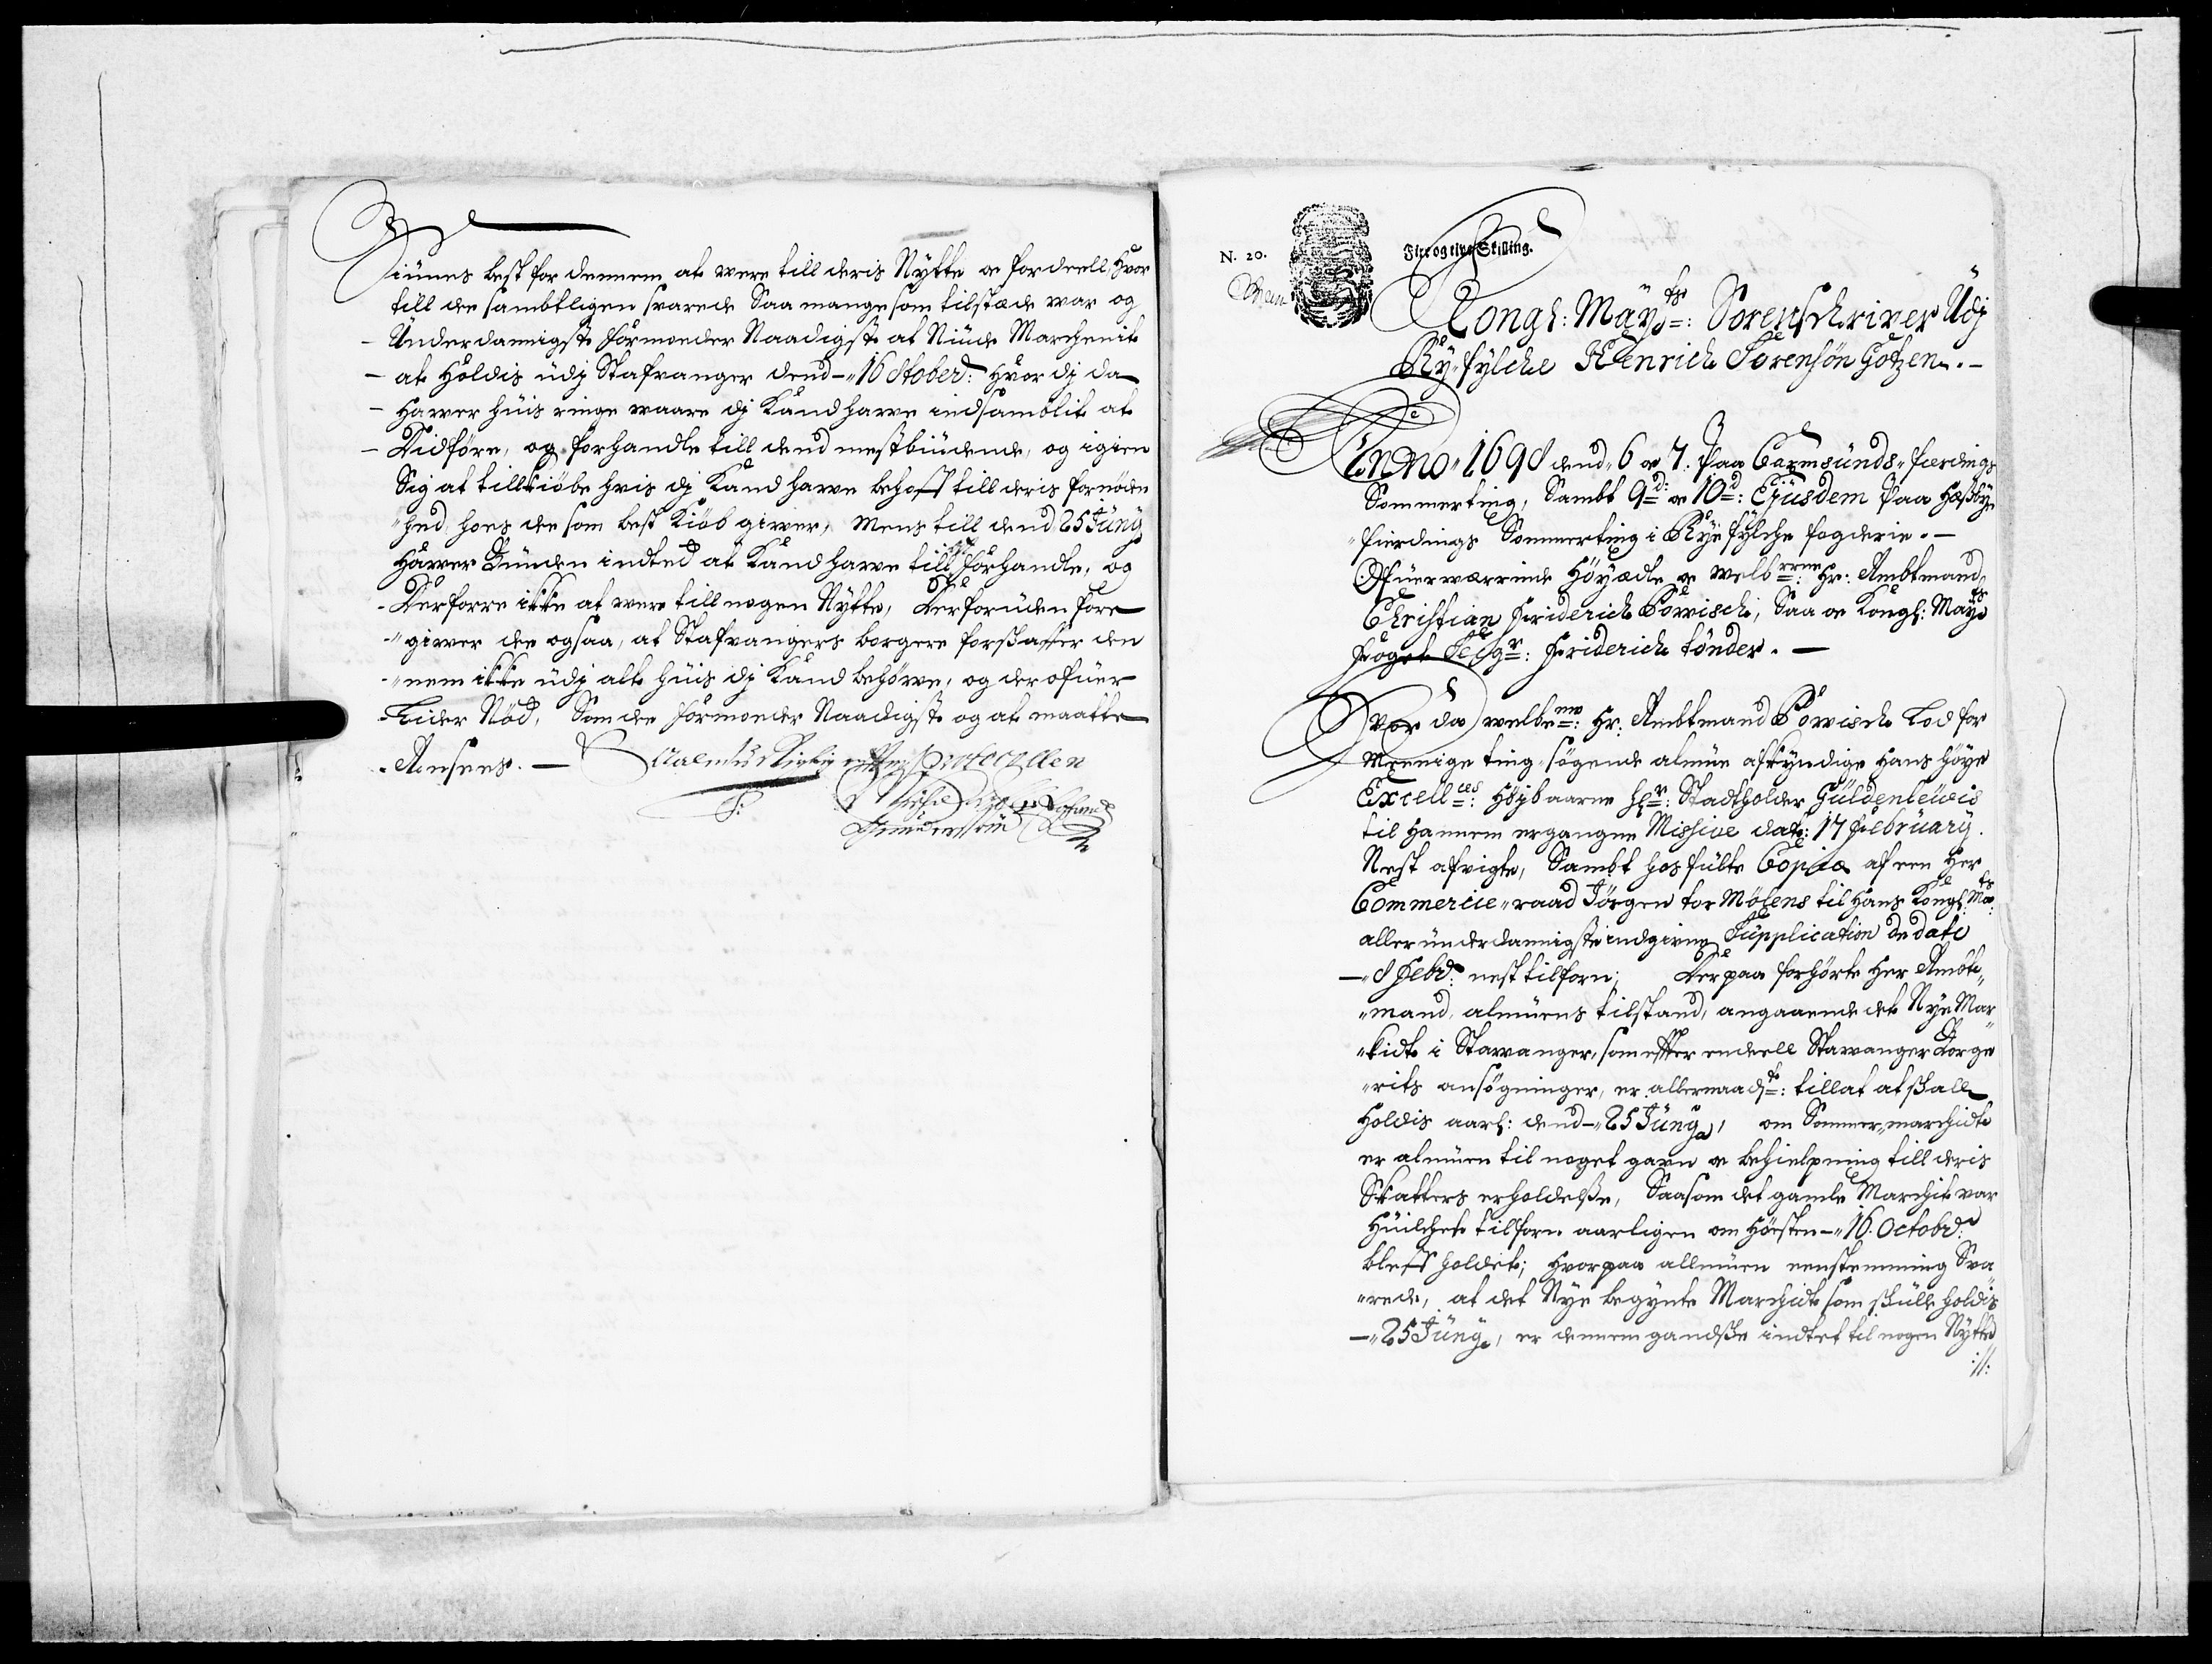 Siünes best for dennem at were till deris Nytte oc fordeell, Hvor
till de sambtligen svarede Saa mange som tilstæde war og
Underdannigste formoeder Naadigste at Niüde Marchenit
at Holdis üdj Stafvanger dend 16 October: Hvor dj da
Hawer hüis ringe waare dj Kand hawe indsamblit at
Didföre, og forhandle till dend mestbiüdende, og igien
Sig at till kiöbe hvis dj Kand hawe behoff till deris fornöden
hed hoes de som best Kiöb giwer, Mens till dend 25 Jüny
Hawer Bünden indted at Kand hawe till forhandle, og
Derforre ikke at were till nogen Nytte, Derforüden fore
giwer de ogsaa, at Stafvangers borgere forskaffer den
nem ikke üdj alt hüis dj Kand behöwe, og derofüer
Lider Nöd, Som de formoeder Naadigste og at maatte
Ansees.
Protocollen
N. 20.
Fire og tive Skilling.
Kongl: Mayts: Sorenschriver Udj
Ry-fylcke Henrich Sörensön Götzen.
Anno 1698 dend 6 oc 7. Paa Carmsünds-fierdings
Sommerting, Sambt 9d: oc 10d: Ejüsdem Paa Hæsbye
fierdings Sommerting i Ryefylche fogderie.
Ofüerwærrende Höyædle oc welbrrne: Hr: Ambtmand
Christian Friderich Powisch, Saa oc Kongl: Mayts
Foget Seigr: Friderich Tönder.
Hvor da welbene: Hr: Ambtmand Powisch Lod for
Meenige ting-sögende almüe afkyndige Hans Höye
Excellces: Höjbaarne Hr: Stadtholder Güldenlewis
til Hannem ergangne Missive dat: 17 February.
Nest afvigte, Sambt hosfülte Copia af een Her
Commercie-raad Jörgen tor Möhlens til Hans Kongl: Mats:
alleründerdannigste indgivne Süpplication de dato
8 Febr: nest tilforn; Derpaa forhörte Her Ambt
mand almüens tilstand, angaaende det Nye Mar
kidt i Stawanger, som effter endeell Stawanger Borge
rits ansögninger, er allernaadt: tillat at skall
Holdis aarl: dend 25 Jüny, om Sommer-marchidte
er almüen til noget gavn oc behielpning till deris
Skatters erholdelße, Saasom det gamle Marchit var
Hüilchet tilforn aarligen om Hösten 16. Octobr.
bleff holdet; Hvorpaa allmüen eenstemming Sva
rede, at det Nye begynte Marchidt som skülle holdis
25 Jüny, er dennem gandske indtet til nogen Nytte
://: